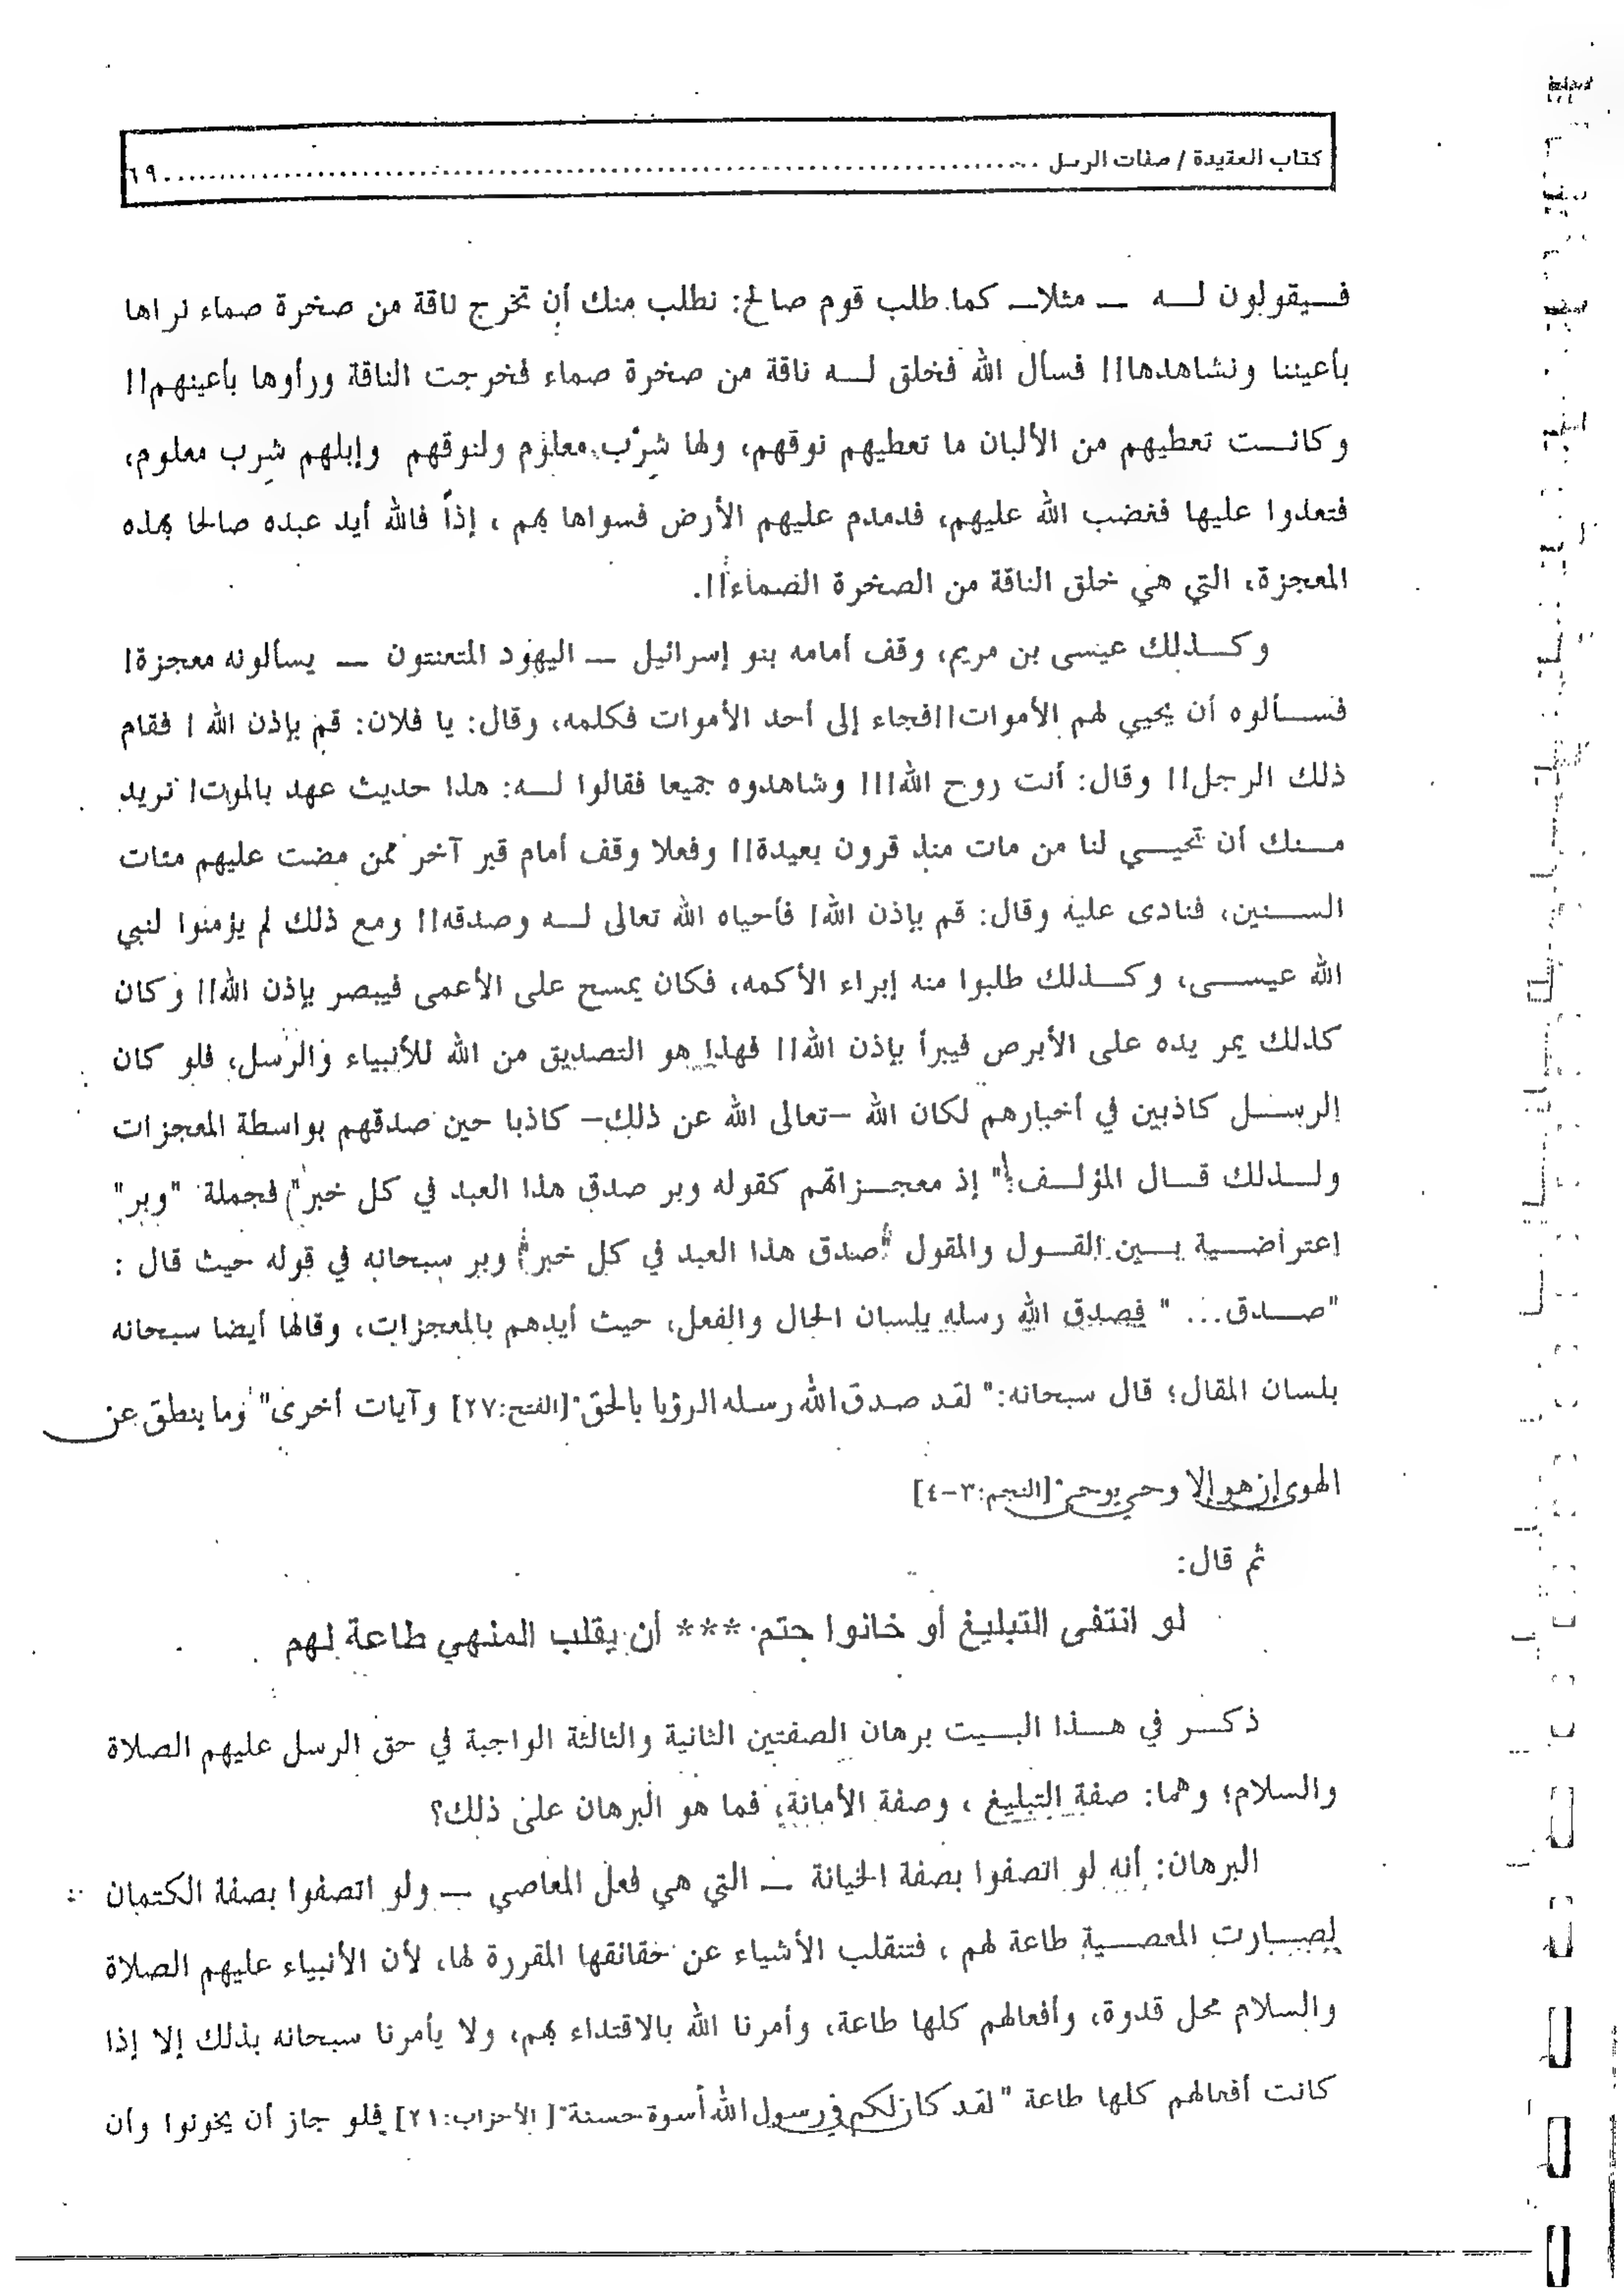 كتاب العقيدة / صفات الرسل ........................................ ٦٩
فـيقولون لـه ــ مثلاـ كما طلب قوم صالح: نطلب منك أن تخرج ناقة من صخرة صماء نراها
بأعيننا ونشاهدها!! فسأل الله فخلق لـه ناقة من صخرة صماء فخرجت الناقة ورأوها بأعينهم!!
وكانـت تعطيهم من الألبان ما تعطيهم نوقهم، ولها شِرْب معلوم ولنوقهم وإبلهم شِرب معلوم،
فتعدوا عليها فغضب الله عليهم، فدمدم عليهم الأرض فسواها بهم ، إذاً فالله أيد عبده صالحا بهذه
المعجزة، التي هي خلق الناقة من الصخرة الصماء!!.
وكـذلك عيسى بن مريم، وقف أمامه بنو إسرائيل ــ اليهود المتعنتون ــ يسألونه معجزة!
فسـألوه أن يحيي لهم الأموات!!فجاء إلى أحد الأموات فكلمه، وقال: يا فلان: قم بإذن الله ! فقام
ذلك الرجل!! وقال: أنت روح الله!!! وشاهدوه جميعا فقالوا لـه: هذا حديث عهد بالموت! نريد
مـنك أن تحيـي لنا من مات منذ قرون بعيدة!! وفعلا وقف أمام قبر آخر ممن مضت عليهم مئات
السـنين، فنادى عليه وقال: قم بإذن الله! فأحياه الله تعالى لـه وصدقه!! ومع ذلك لم يؤمنوا لنبي
الله عيسـى، وكـذلك طلبوا منه إبراء الأكمه، فكان يمسح على الأعمى فيبصر بإذن الله!! وكان
كذلك يمر يده على الأبرص فيبرأ بإذن الله!! فهذا هو التصديق من الله للأنبياء والرسل، فلو كان
الرسـل كاذبين في أخبارهم لكان الله –تعالى الله عن ذلك– كاذبا حين صدقهم بواسطة المعجزات
ولـذلك قـال المؤلـف:" إذ معجـزاتهم كقوله وبر صدق هذا العبد في كل خبر" فجملة "وبر"
اعتراضـية بـين القـول والمقول "صدق هذا العبد في كل خبر" وبر سبحانه في قوله حيث قال :
"صـدق... " فصدق الله رسله بلسان الحال والفعل، حيث أيدهم بالمعجزات، وقالها أيضا سبحانه
بلسان المقال؛ قال سبحانه:" لقد صدق الله رسله الرؤيا بالحق"[الفتح:٢٧] وآيات أخرى" وما ينطق عن
الهوى إن هو إلا وحي يوحى"[النجم:٣–٤]
ثم قال:
لو انتفى التبليغ أو خانوا حتم *** أن يقلب المنهي طاعة لهم
ذكـر في هـذا البـيت برهان الصفتين الثانية والثالثة الواجبة في حق الرسل عليهم الصلاة
والسلام؛ وهما: صفة التبليغ ، وصفة الأمانة، فما هو البرهان على ذلك؟
البرهان: أنه لو اتصفوا بصفة الخيانة ــ التي هي فعل المعاصي ــ ولو اتصفوا بصفة الكتمان
لصـارت المعصـية طاعة لهم ، فتنقلب الأشياء عن حقائقها المقررة لها، لأن الأنبياء عليهم الصلاة
والسلام محل قدوة، وأفعالهم كلها طاعة، وأمرنا الله بالاقتداء بهم، ولا يأمرنا سبحانه بذلك إلا إذا
كانت أفعالهم كلها طاعة "لقد كان لكم في رسول الله أسوة حسنة"[الأحزاب:٢١] فلو جاز أن يخونوا وأن